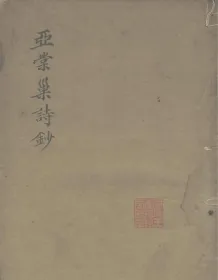 亞棠巢詩鈔